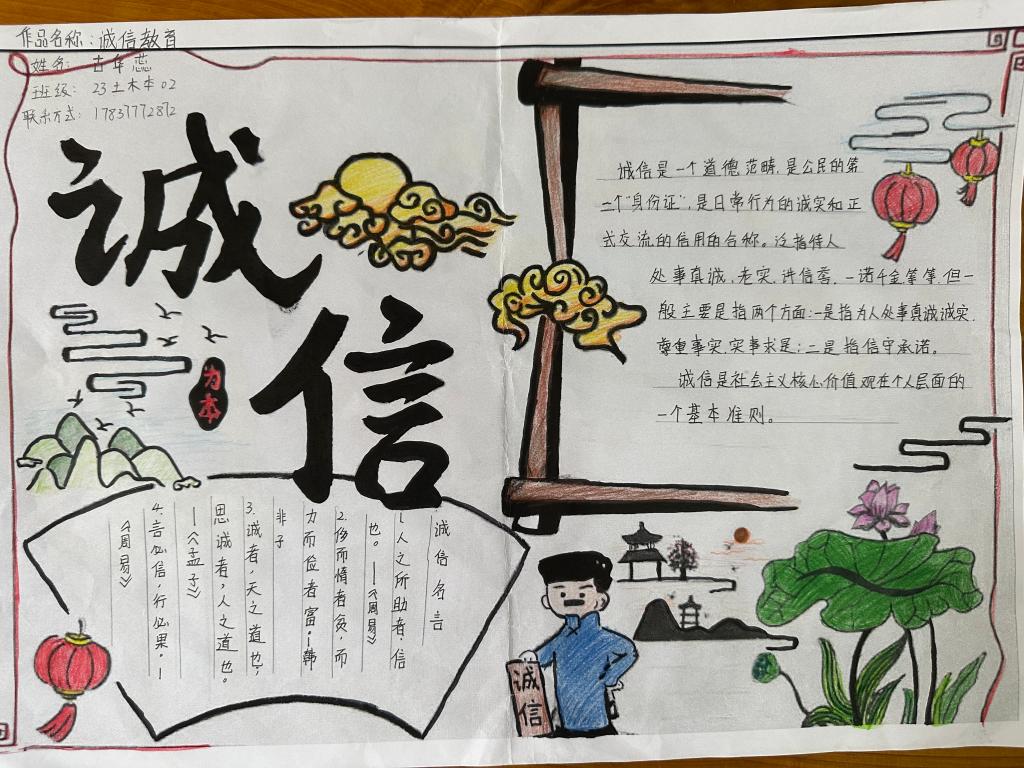 作品名称:诚信教育
姓名: 古年蕊
班级: 23土木本02
联系方式: 17837772872
诚
信
为本
诚信是一个道德范畴,是公民的第
二个“身份证”,是日常行为的诚实和正
式交流的信用的合称。泛指待人
处事真诚、老实、讲信誉,一诺千金等等,但一
般主要是指两个方面:一是指为人处事真诚诚实,
尊重事实,实事求是;二是指信守承诺。
诚信是社会主义核心价值观在个人层面的
一个基本准则。
诚信名言
1.人之所助者,信
也。——《周易》
2.侈而惰者贫,而
力而俭者富——韩
非子
3.诚者,天之道也,
思诚者,人之道也。
——《孟子》
4.言必信,行必果。—
《周易》
诚信